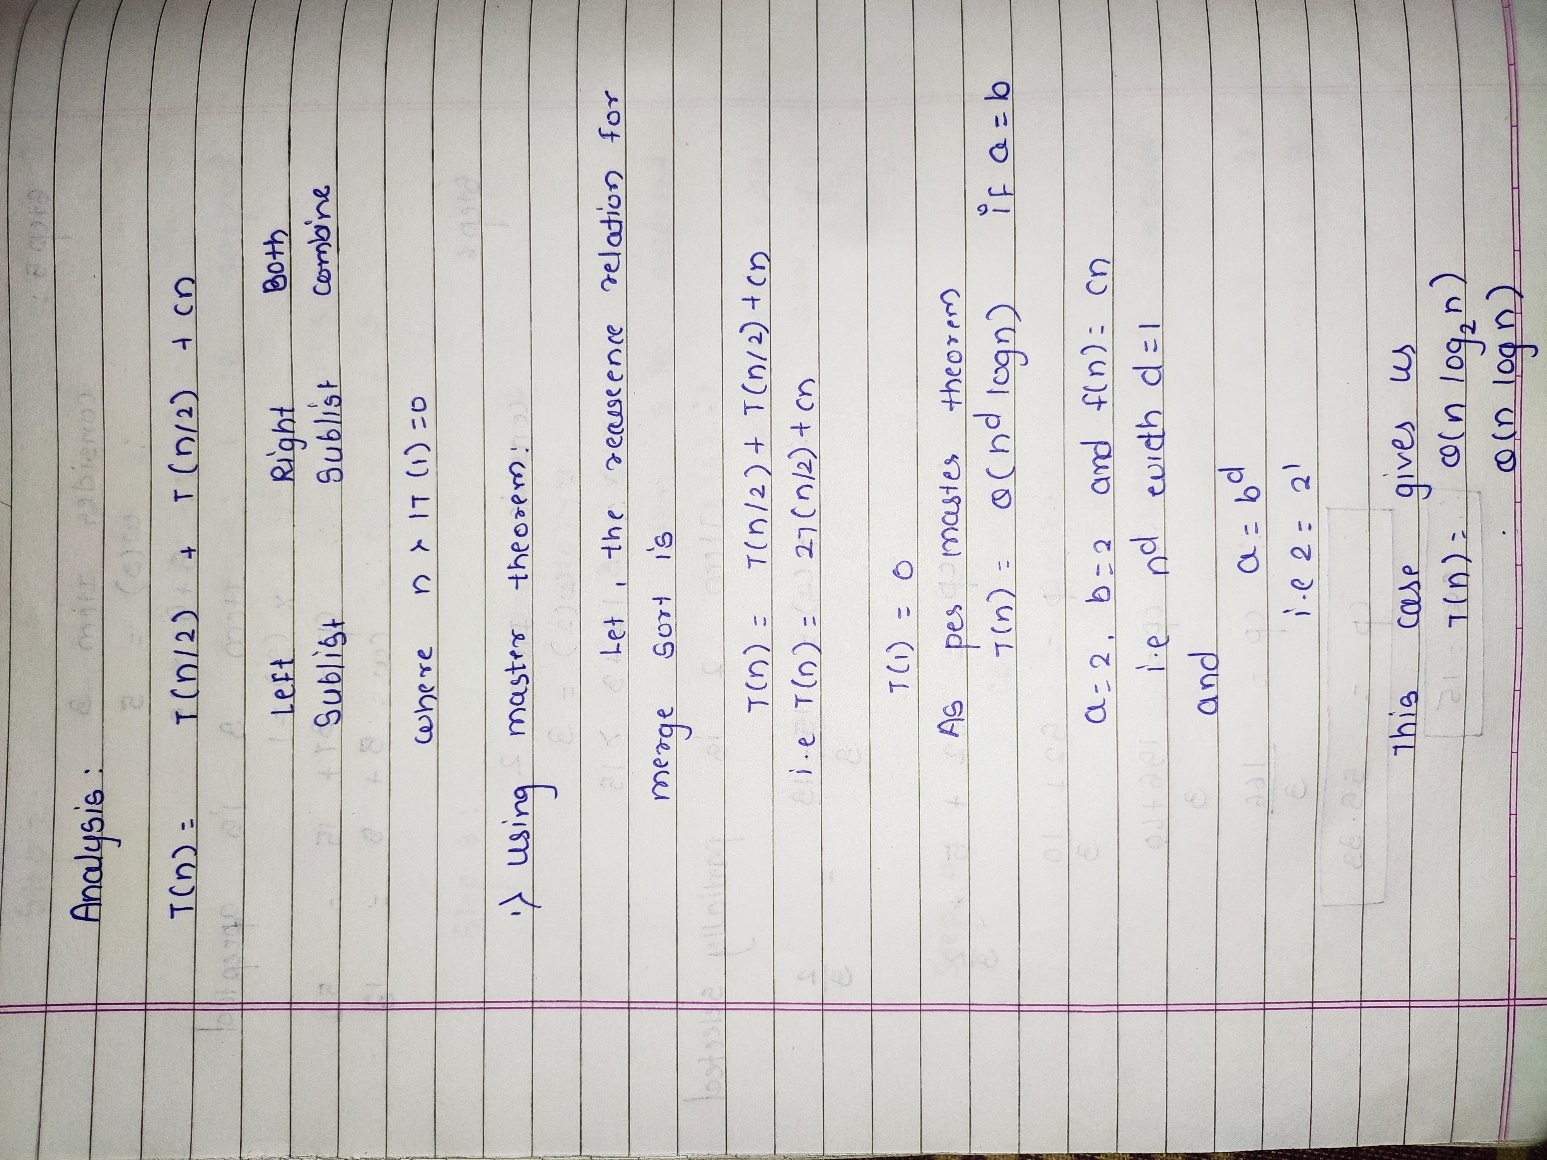 Analysis:
T(n) = T(n/2) + T(n/2) + cn
Left Right Both
Sublist Sublist combine
where n > 1T (1) = 0
i) using master theorem:
Let, the
relation for
merge sort is
T(n) = T(n/2) + T(n/2) + cn
i.e T(n) = 2T(n/2) + cn
T(1) = 0
As per master theorem
T(n) = Θ(n^d logn) if a = b
a = 2, b = 2 and f(n) = cn
i.e n^d with d = 1
and
a = b^d
i.e 2 = 2^1
This case gives us
T(n) = Θ(n log₂ n)
Θ(n log n)